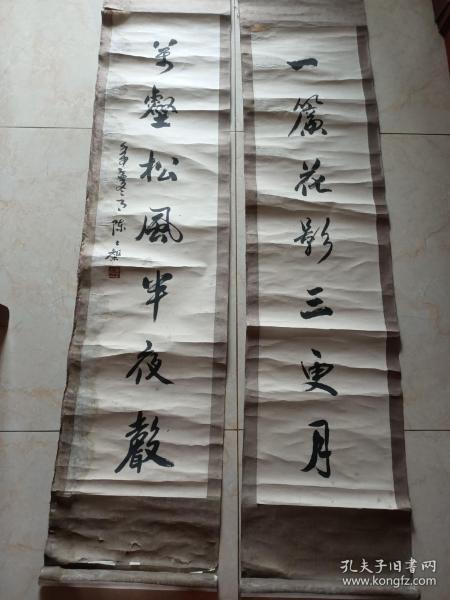 一簾花影三更月
萬壑松風半夜聲
孔夫子旧书网
www.kongfz.com